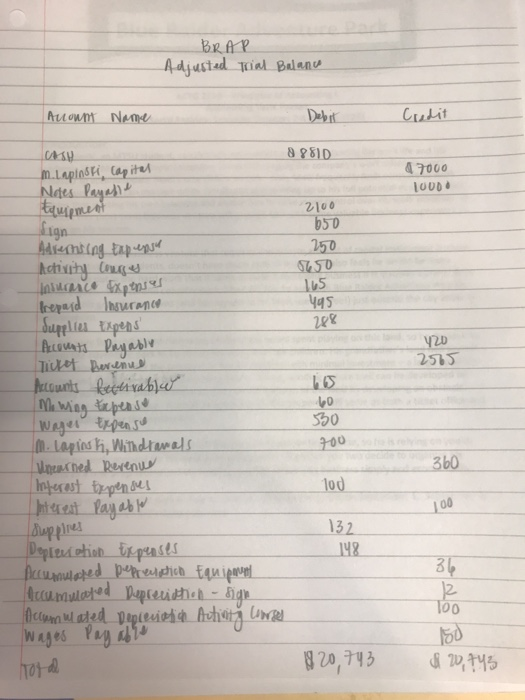 BRAP
Adjusted Trial Balance
Account Name Debit Credit
CASH $8810
M. Lapinski, Capital $7000
Notes Payable 10000
Equipment 2100
Sign 650
Advertising Expense 250
Activity Courses 5650
Insurance Expenses 165
Prepaid Insurance 495
Supplies Expens 288
Accounts Payable 420
Ticket Revenue 2565
Accounts Receivable 665
Mowing Expense 60
Wages Expense 530
M. Lapinski, Withdrawals 700
Unearned Revenue 360
Interest Expenses 100
Interest Payable 100
Supplies 132
Depreciation Expenses 148
Accumulated Depreciation Equipment 36
Accumulated Depreciation - Sign 12
Accumulated Depreciation Activity Courses 100
Wages Payable 150
Total $20,743 $20,743